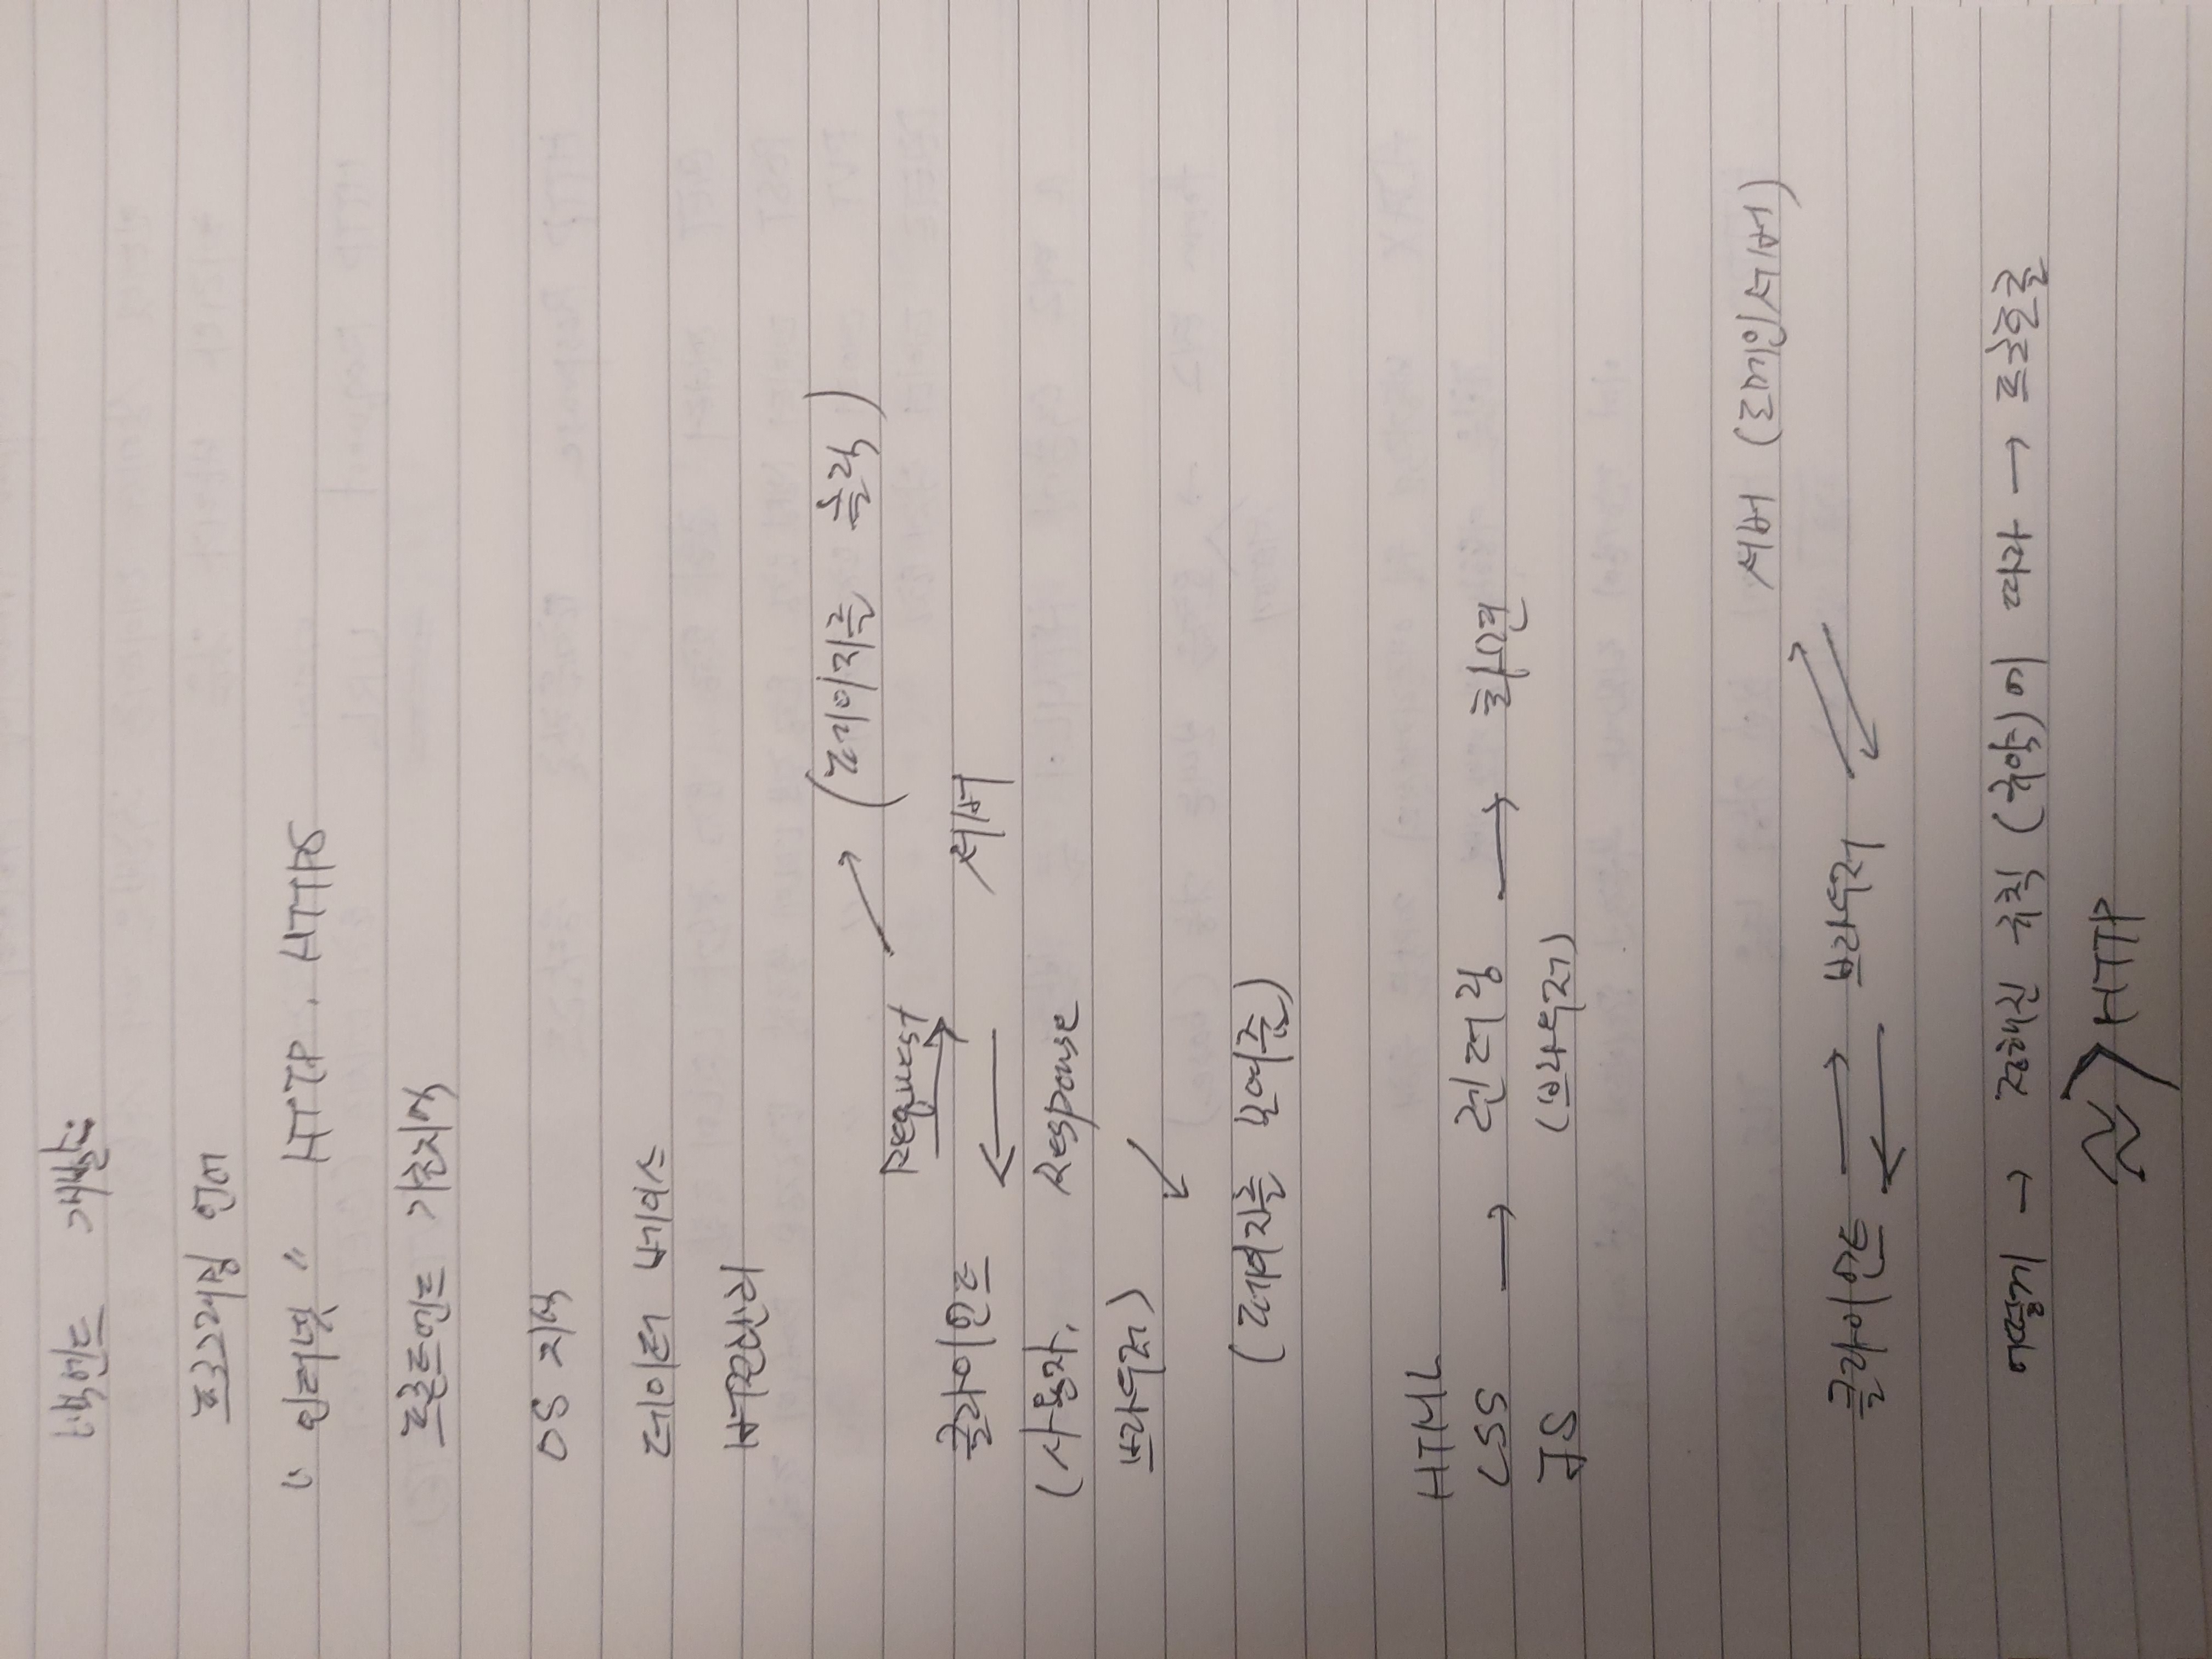 백엔드 개발:
프로그래밍 언어
"인터넷" HTTP, HTTPS
프론트엔드 기초지식
OS 지식
데이터 베이스
버전관리
Request → (페이지를 클릭)
클라이언트 → ← 서버
(사용자, Response
브라우저) ↙
(페이지를 보여줌)
HTML
CSS → 렌더링 → 화면
JS (브라우저)
서버 (도메인서버)
클라이언트 → ← 브라우저
어떻게 → 정해진 규칙 (규약)에 따라 → 프로토콜
HTTP